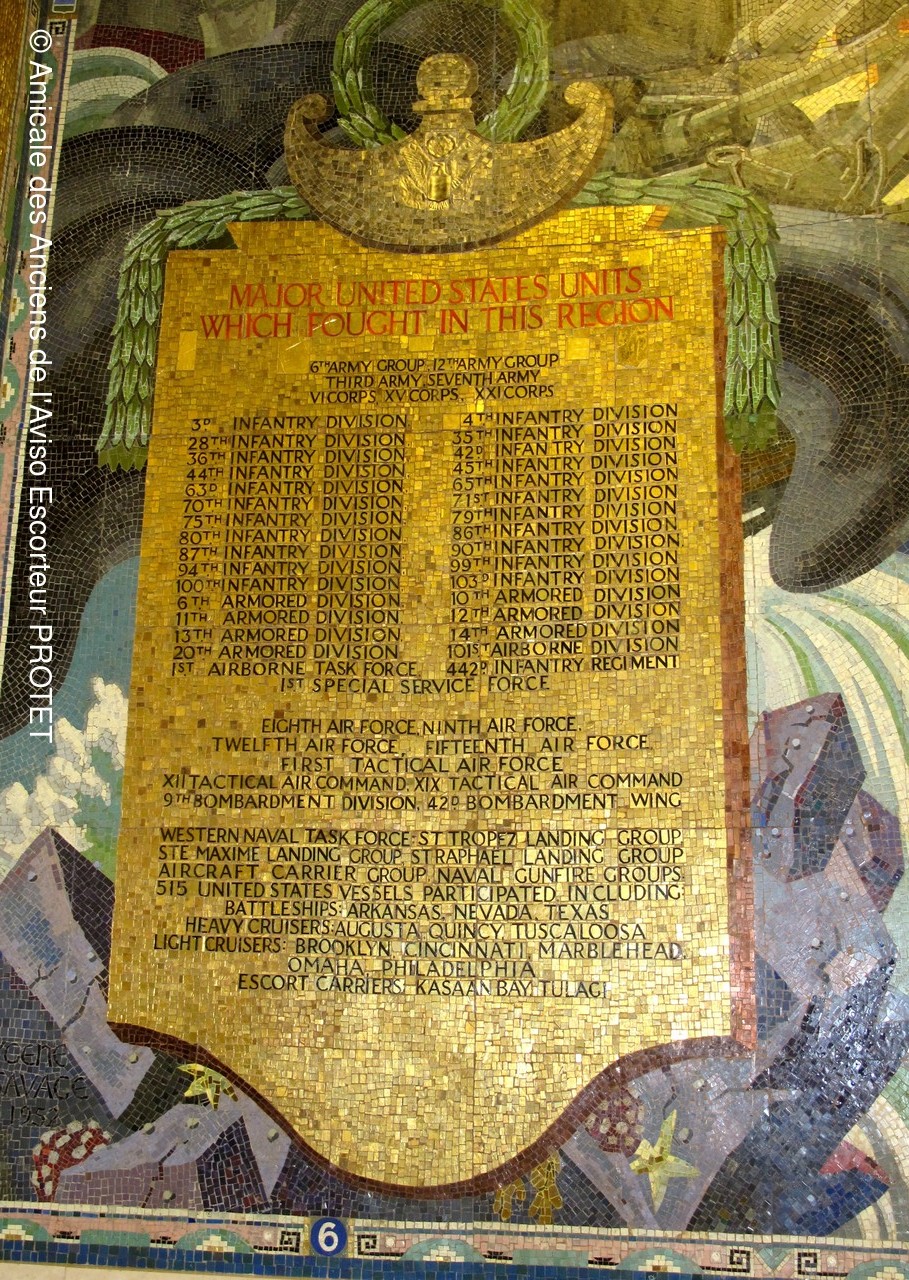 © Amicale des Anciens de l'Aviso Escorteur PROTET
MAJOR UNITED STATES UNITS
WHICH FOUGHT IN THIS REGION
6TH ARMY GROUP, 12TH ARMY GROUP
THIRD ARMY, SEVENTH ARMY
VI CORPS, XV CORPS, XXI CORPS
3D INFANTRY DIVISION 4TH INFANTRY DIVISION
28TH INFANTRY DIVISION 35TH INFANTRY DIVISION
36TH INFANTRY DIVISION 42D INFANTRY DIVISION
44TH INFANTRY DIVISION 45TH INFANTRY DIVISION
63D INFANTRY DIVISION 65TH INFANTRY DIVISION
70TH INFANTRY DIVISION 71ST INFANTRY DIVISION
75TH INFANTRY DIVISION 79TH INFANTRY DIVISION
80TH INFANTRY DIVISION 86TH INFANTRY DIVISION
87TH INFANTRY DIVISION 90TH INFANTRY DIVISION
94TH INFANTRY DIVISION 99TH INFANTRY DIVISION
100TH INFANTRY DIVISION 103D INFANTRY DIVISION
6TH ARMORED DIVISION 10TH ARMORED DIVISION
11TH ARMORED DIVISION 12TH ARMORED DIVISION
13TH ARMORED DIVISION 14TH ARMORED DIVISION
20TH ARMORED DIVISION 101ST AIRBORNE DIVISION
1ST AIRBORNE TASK FORCE 442D INFANTRY REGIMENT
1ST SPECIAL SERVICE FORCE
EIGHTH AIR FORCE, NINTH AIR FORCE,
TWELFTH AIR FORCE, FIFTEENTH AIR FORCE,
FIRST TACTICAL AIR FORCE
XII TACTICAL AIR COMMAND, XIX TACTICAL AIR COMMAND
9TH BOMBARDMENT DIVISION, 42D BOMBARDMENT WING
WESTERN NAVAL TASK FORCE: ST TROPEZ LANDING GROUP
STE MAXIME LANDING GROUP, ST RAPHAEL LANDING GROUP
AIRCRAFT CARRIER GROUP, NAVAL GUNFIRE GROUPS
515 UNITED STATES VESSELS PARTICIPATED, INCLUDING:
BATTLESHIPS: ARKANSAS, NEVADA, TEXAS
HEAVY CRUISERS: AUGUSTA, QUINCY, TUSCALOOSA
LIGHT CRUISERS: BROOKLYN, CINCINNATI, MARBLEHEAD,
OMAHA, PHILADELPHIA
ESCORT CARRIERS: KASAAN BAY, TULAGI
1952
6